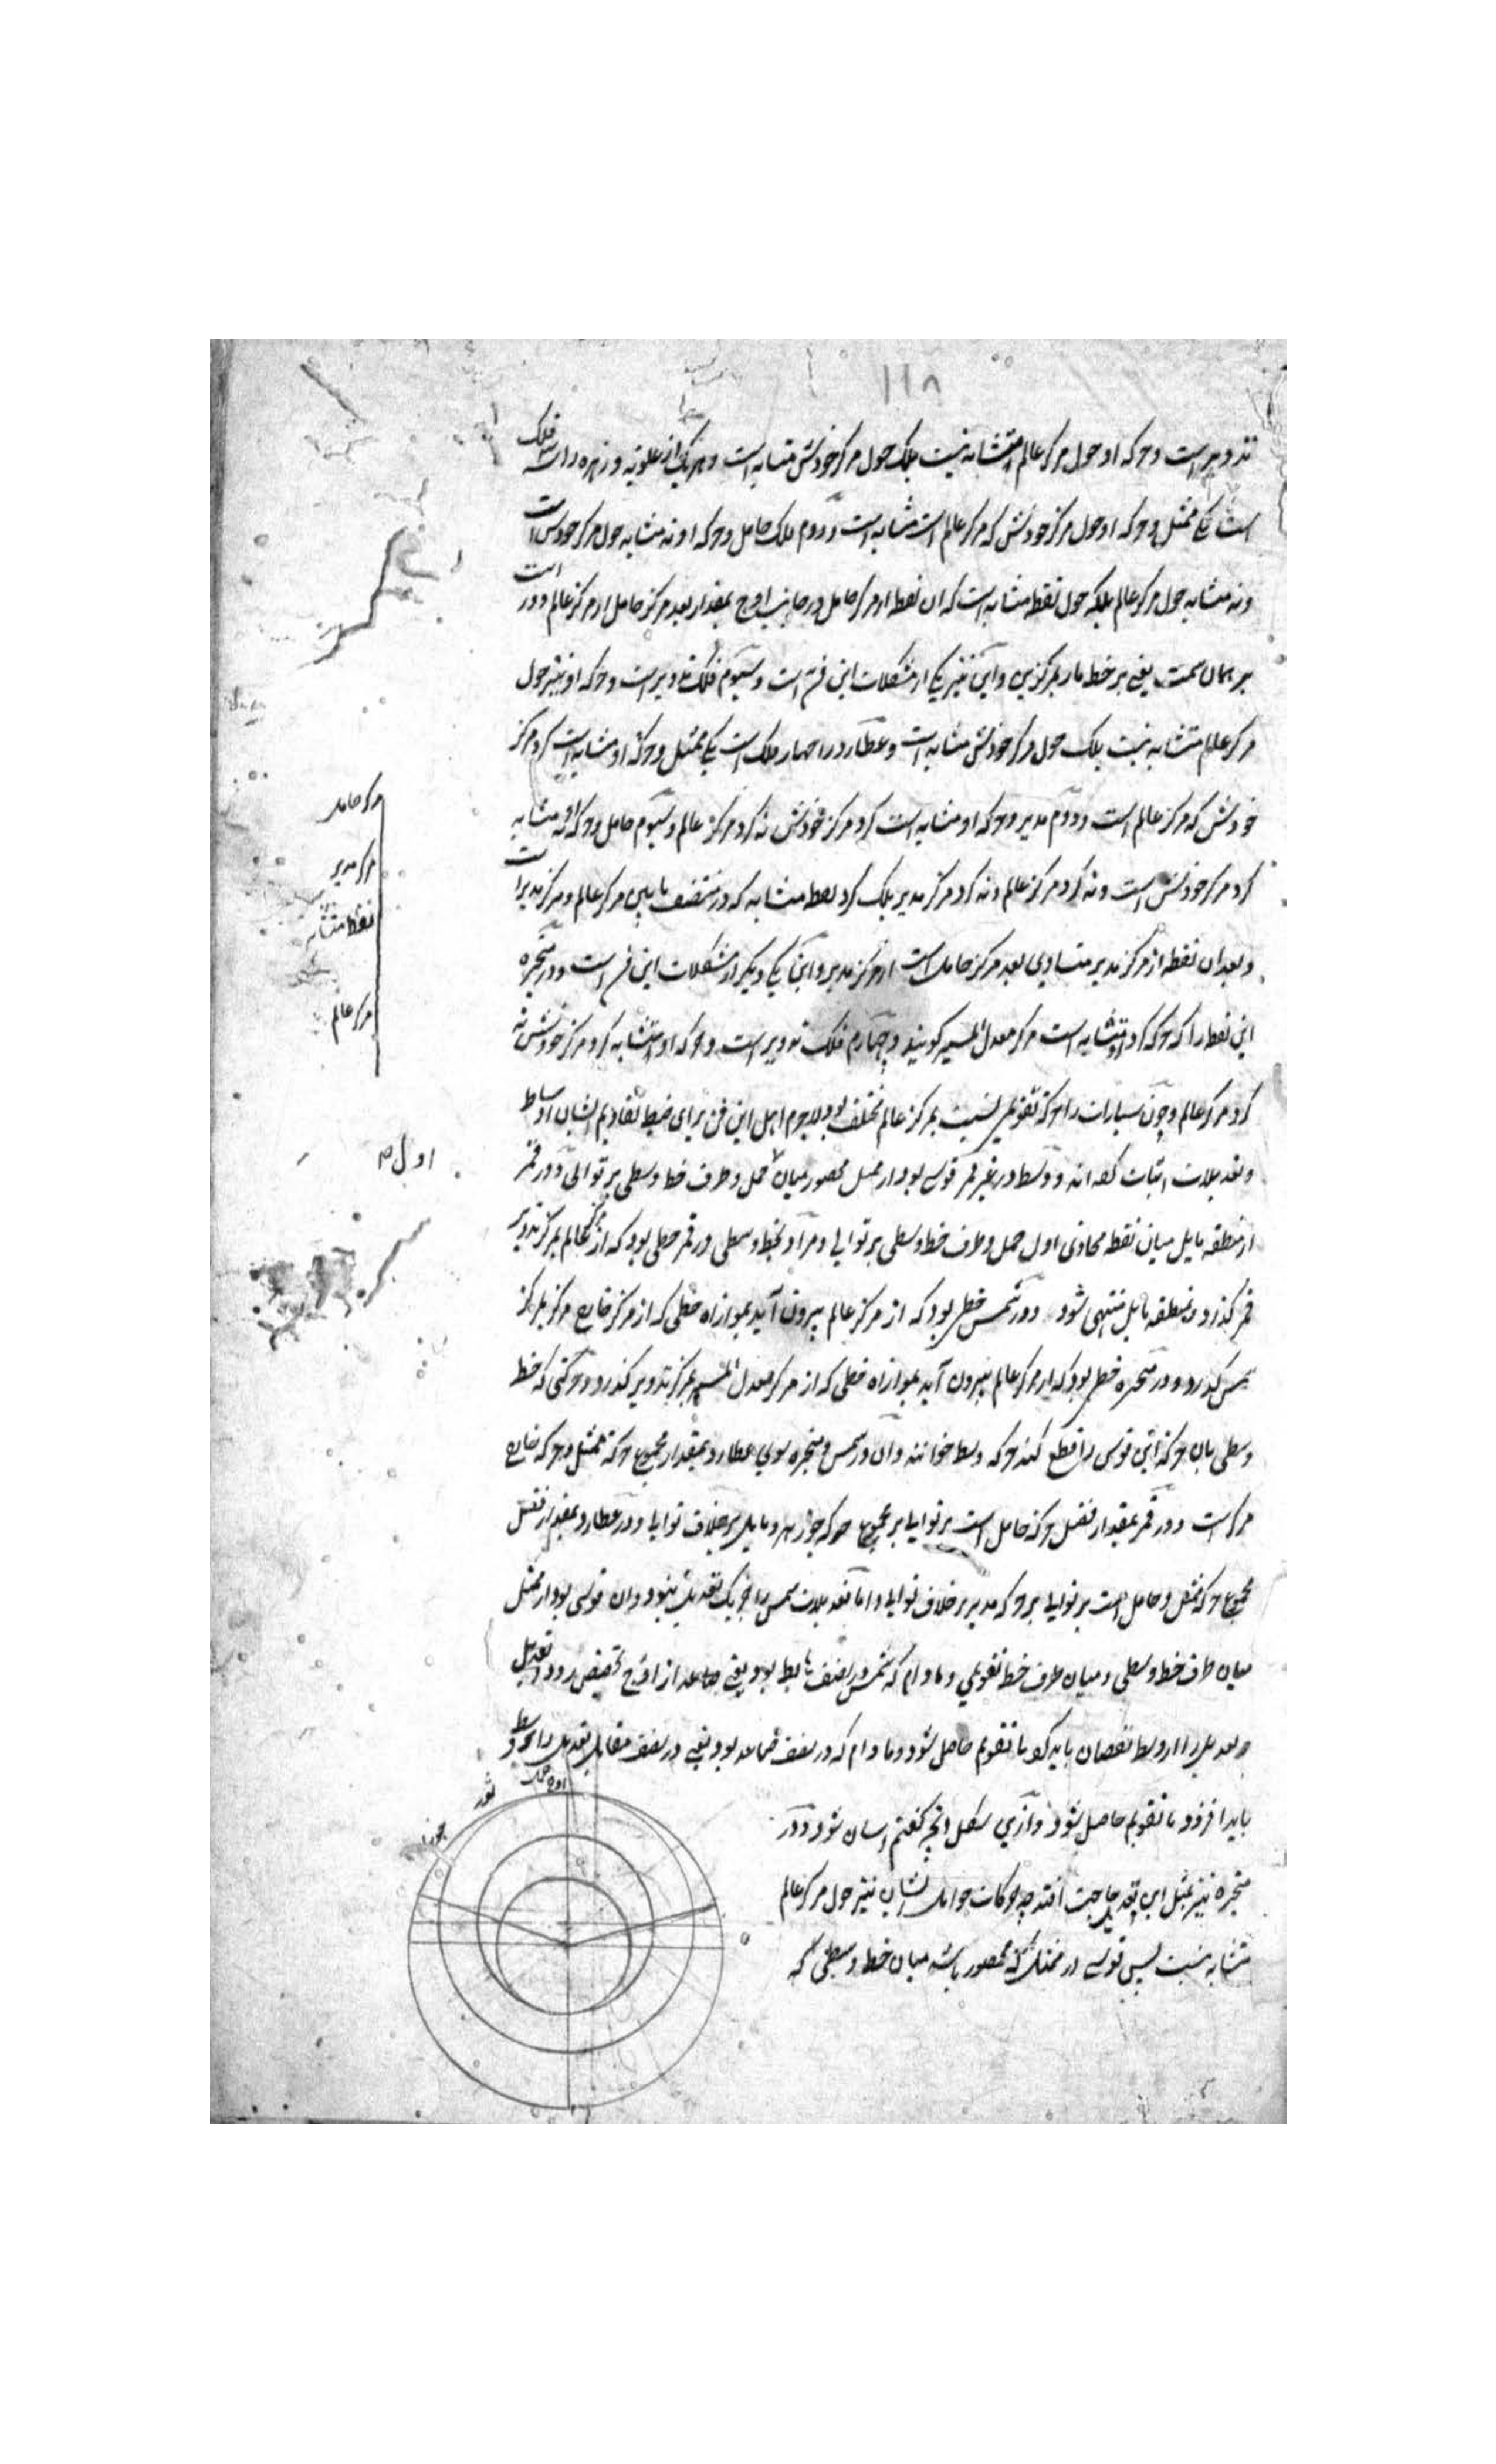 ١١٨
تدویر است و حرکه او حول مرکز عالم متشابه نیست بلک حول مرکز خودش متشابه است و هر یکی از علویه و زهره را سه فلک
است یکی ممثل و حرکه او حول مرکز خودش که مرکز عالم است متشابه است و دوم فلک حامل و حرکه او نه متشابه حول مرکز خودش است
و نه متشابه حول مرکز عالم بلکه حول نقطه متشابه است که ان نقطه از مرکز حامل در جانب اوج بمقدار بعد مرکز حامل از مرکز عالم دور است
بر همان سمت یعنی بر خط مار بمرکزین و این نیز یکی از مشکلات این فن است و سیوم فلک تدویر است و حرکه او نیز حول
مرکز عالم متشابه نیست بلک حول مرکز خودش متشابه است و عطارد را چهار فلک است یکی ممثل و حرکة او متشابه است کرد مرکز
خودش که مرکز عالم است و دوم مدیر و حرکه او متشابه است کرد مرکز خودش نه کرد مرکز عالم و سیوم حامل و حرکه او نه متشابه
کرد مرکز خودش است و نه کرد مرکز عالم و نه کرد مرکز مدیر بلک کرد نقطه متشابه که در منتصف مابین مرکز عالم و مرکز مدیر است
و بعد ان نقطه از مرکز مدیر متساوی بعد مرکز حامل است از مرکز مدیر و این یکی دیکر از مشکلات این فن است و در متحیره
این نقطه را که حرکه کرد او متشابه است مرکز معدل المسیر کویند و چهارم فلک تدویر است و حرکه او متشابه کرد مرکز خودش نه
کرد مرکز عالم و چون سیارات را حرکة تقویمی نسبت بمرکز عالم مختلف بود لاجرم اهل این فن برای ضبط تقاویم ایشان اوساط
و تعدیلات اثبات کرده اند و وسط در غیر قمر قوسی بود از ممثل محصور میان حمل و طرف خط وسطی بر توالی و در قمر
از منطقه مایل میان نقطه محاذی اول حمل و طرف خط وسطی بر توالی و مراد بخط وسطی در قمر خطی بود که از مرکز عالم بمرکز تدویر
قمر کذرد و بمنطقه مایل منتهی شود و در شمس خطی بود که از مرکز عالم بیرون آید بموازاه خطی که از مرکز خارج مرکز بمرکز
شمس کذرد و در متحیره خطی بود که از مرکز عالم بیرون آید بموازاه خطی که از مرکز معدل المسیر بمرکز تدویر کذرد و حرکتی که خط
وسطی بان حرکة این قوس را قطع کند حرکه وسط خوانند و ان در شمس و متحیره سوی عطارد بمقدار مجموع حرکة ممثل و حرکه خارج
مرکز است و در قمر بمقدار فضل حرکة حامل است بر توالی بر مجموع حرکه جوزهر و مایل بر خلاف توالی و در عطارد بمقدار فضل
مجموع حرکه ممثل و حامل است بر توالی بر حرکه مدیر بر خلاف توالی و اما تعدیلات شمس را جز یک تعدیل نبود و ان قوسی بود از ممثل
میان طرف خط وسطی و میان طرف خط تقویمی و مادام که شمس در نصف هابط بود یعنی از اوج بحضیض رود تعدیل
را از وسط نقصان باید کرد تا تقویم حاصل شود و مادام که در نصف صاعد بود یعنی در نصف مقابل تعدیل را بر وسط
باید افزود تا تقویم حاصل شود و ازین شکل انچه کفتم اسان شود و در
متحیره نیز بمثل این تعدیل حاجت افتد چه حرکات حوامل ایشان نیز حول مرکز عالم
متشابه نیست پس قوسی از ممثل که محصور باشد میان خط وسطی که
مرکز حامل
مرکز مدیر
نقطه متشابه
مرکز عالم
اول
اوج حمل
ثور
جوزا